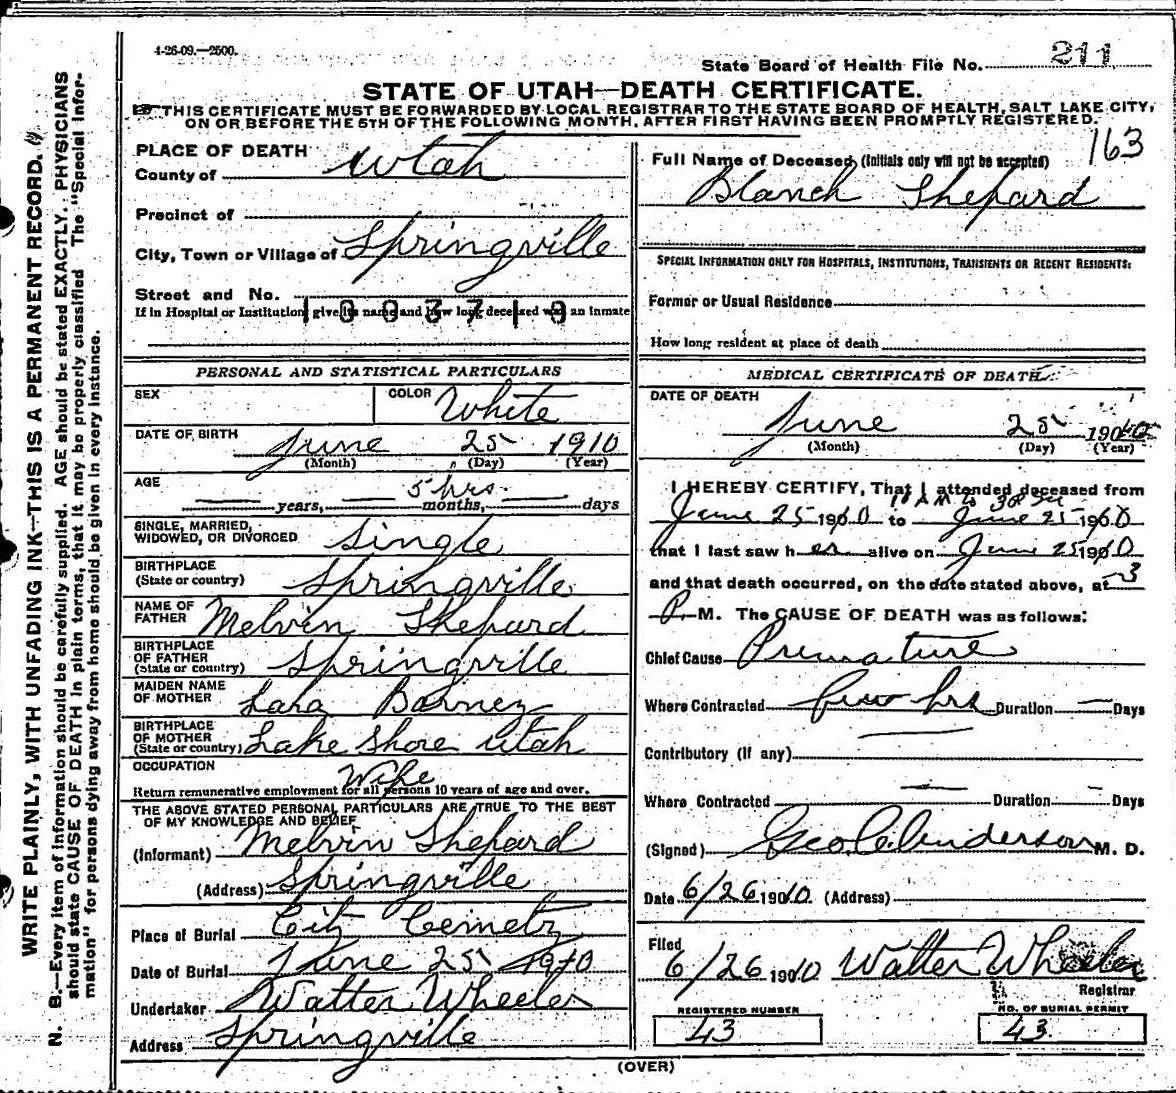 4-26-09.—2500.
State Board of Health File No. 211
STATE OF UTAH—DEATH CERTIFICATE.
THIS CERTIFICATE MUST BE FORWARDED BY LOCAL REGISTRAR TO THE STATE BOARD OF HEALTH, SALT LAKE CITY,
ON OR BEFORE THE 5TH OF THE FOLLOWING MONTH, AFTER FIRST HAVING BEEN PROMPTLY REGISTERED.
163
WRITE PLAINLY, WITH UNFADING INK—THIS IS A PERMANENT RECORD.
N. B.—Every item of information should be carefully supplied. AGE should be stated EXACTLY. PHYSICIANS
should state CAUSE OF DEATH in plain terms, that it may be properly classified. The "Special Infor-
mation" for persons dying away from home should be given in every instance.
PLACE OF DEATH
County of Utah
Precinct of
City, Town or Village of Springville
Street and No.
If in Hospital or Institution, give its name and how long deceased was an inmate
PERSONAL AND STATISTICAL PARTICULARS
SEX
COLOR White
DATE OF BIRTH
June 25 1910
(Month) (Day) (Year)
AGE
5 hrs.
years, months, days
SINGLE, MARRIED,
WIDOWED, OR DIVORCED Single
BIRTHPLACE
(State or country) Springville
NAME OF
FATHER Melvin Shepard
BIRTHPLACE
OF FATHER
(State or country) Springville
MAIDEN NAME
OF MOTHER Barney
BIRTHPLACE
OF MOTHER
(State or country) Lake Shore Utah
OCCUPATION
Return remunerative employment for all persons 10 years of age and over.
THE ABOVE STATED PERSONAL PARTICULARS ARE TRUE TO THE BEST
OF MY KNOWLEDGE AND BELIEF
(Informant) Melvin Shepard
(Address) Springville
Place of Burial City Cemety
Date of Burial June 25 1910
Undertaker Walter Wheeler
Address Springville
Full Name of Deceased, (Initials only will not be accepted)
Blanch Shepard
SPECIAL INFORMATION ONLY FOR HOSPITALS, INSTITUTIONS, TRANSIENTS OR RECENT RESIDENTS:
Former or Usual Residence
How long resident at place of death
MEDICAL CERTIFICATE OF DEATH
DATE OF DEATH
June 25 190
(Month) (Day) (Year)
I HEREBY CERTIFY, That I attended deceased from
June 25 1910 to June 25 1910
that I last saw her alive on June 25 1910
and that death occurred, on the date stated above, at 3
P. M. The CAUSE OF DEATH was as follows:
Chief Cause Premature
Where Contracted few hrs Duration — Days
Contributory (if any)
Where Contracted — Duration — Days
(Signed) Geo. C. Anderson M. D.
Date 6/26 1910 (Address)
Filed
6/26 1910 Walter Wheeler
Registrar
REGISTERED NUMBER
43
NO. OF BURIAL PERMIT
43
(OVER)